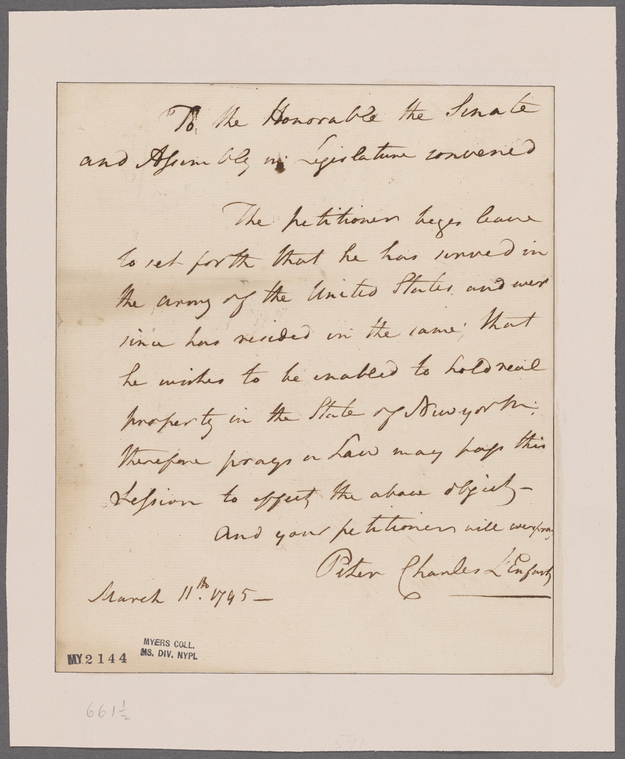 To the Honorable the Senate
and Assembly in Legislature convened
The petitioner begs leave
to set forth that he has served in
the army of the United States and ever
since has resided in the same; that
he wishes to be enabled to hold real
property in the State of New york;
therefore prays a Law may pass this
Session to effect the above object—
And your petitioner will ever pray
Peter Charles L'Enfant
March 11th. 1795—
MY 2144
MYERS COLL.
MS. DIV. NYPL
661½